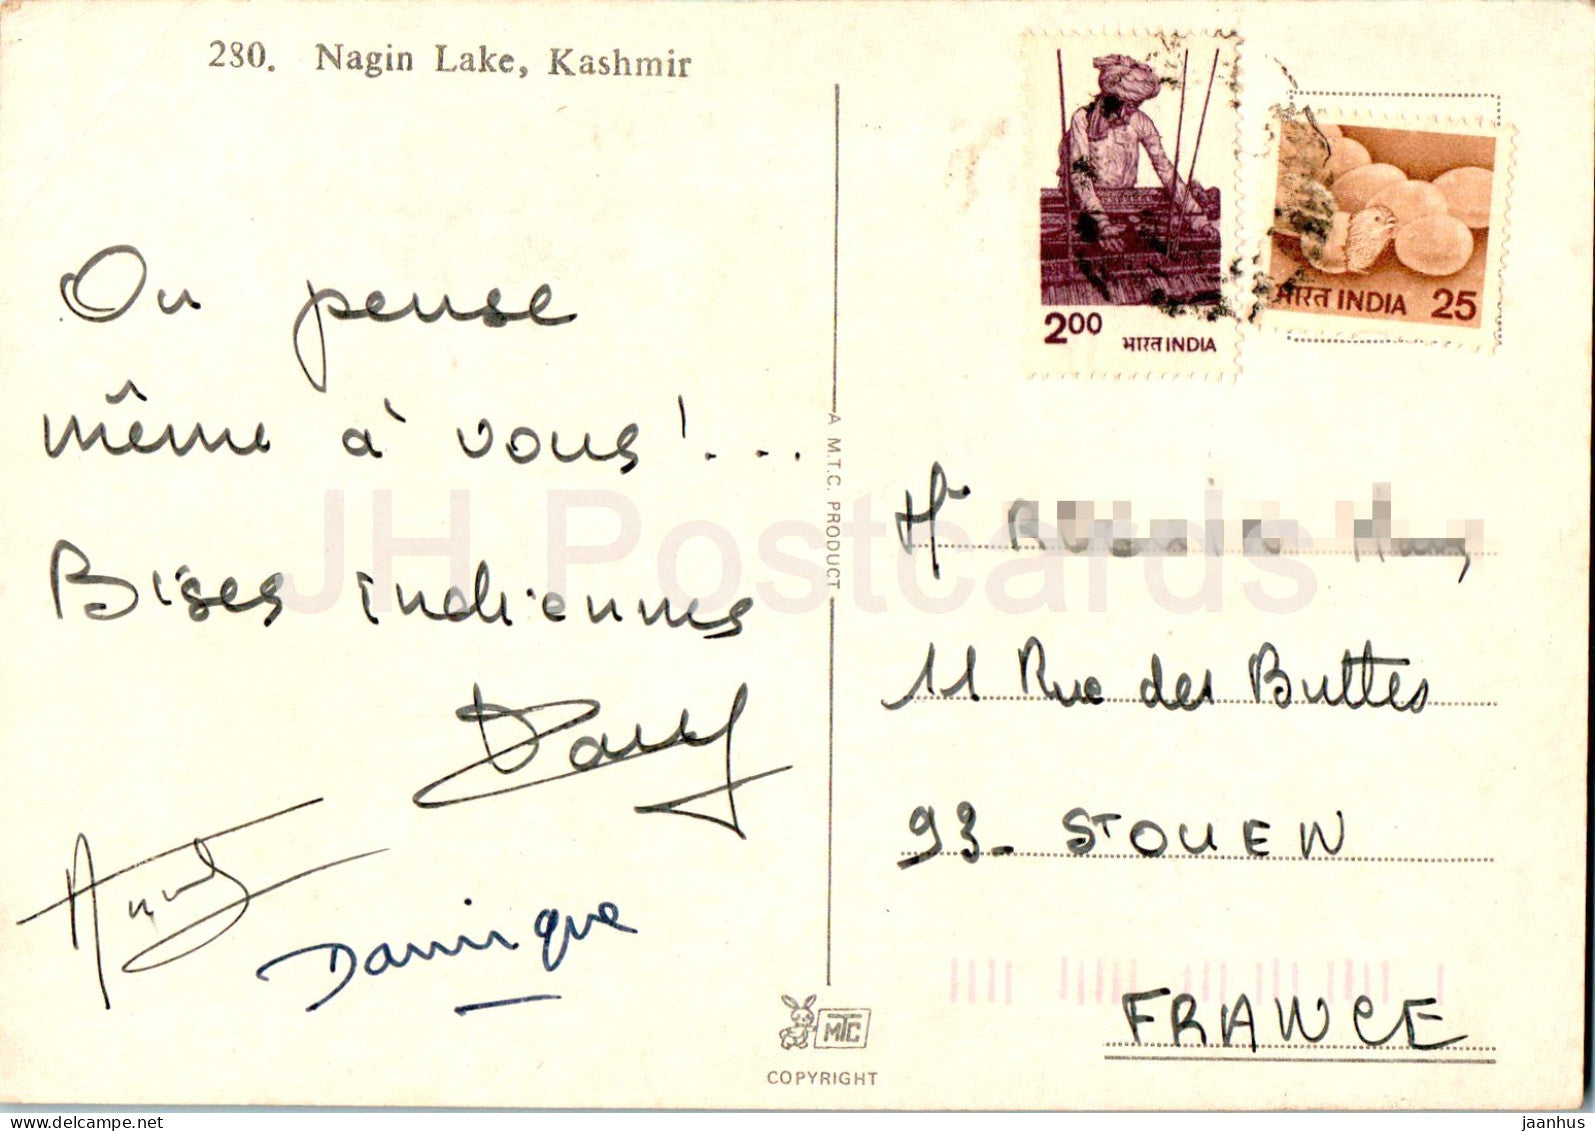 280. Nagin Lake, Kashmir
2.00
भारत INDIA
भारत INDIA 25
On pense
même à vous !...
Bises indiennes
Dany
Dominique
A M.T.C. PRODUCT
MTC
COPYRIGHT
Mr
11 Rue des Buttes
93- ST OUEN
FRANCE
JH Postcards
www.delcampe.net
jaanhus